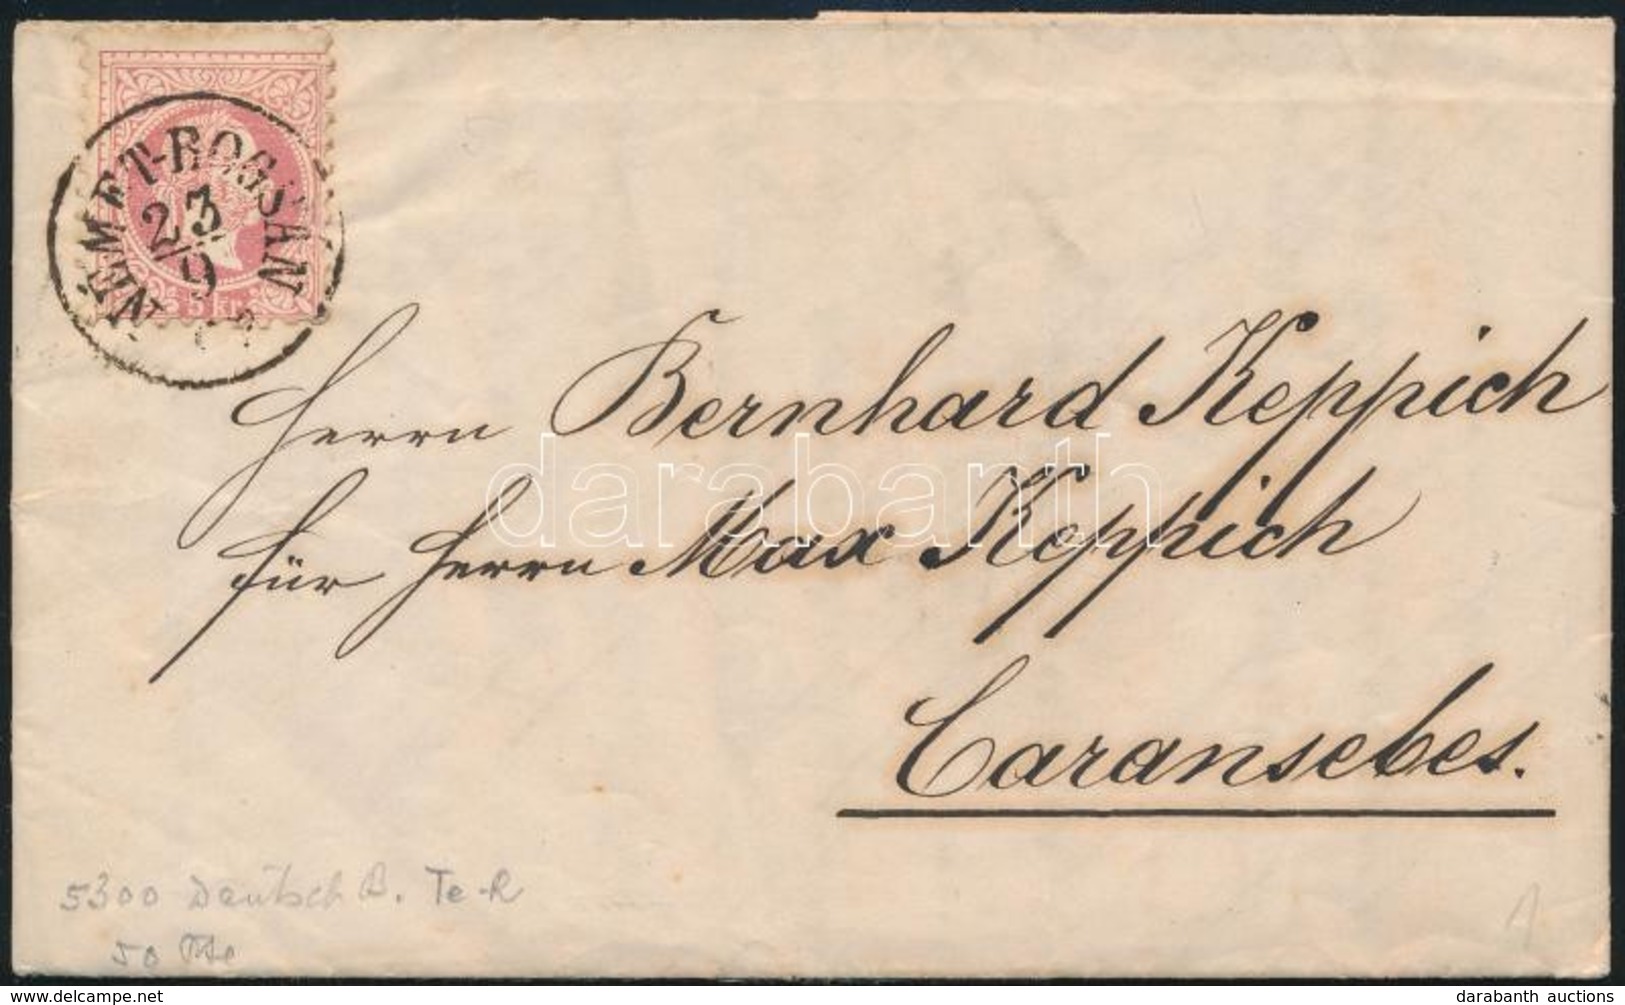 NÉMET-BOGSÁN
23/9
5 kr
Herrn Bernhard Keppich
für Herrn Max Keppich
Caransebes.
darabanth
5300 Deutsch B. Te-R
50
delcampe.net
darabanth auctions